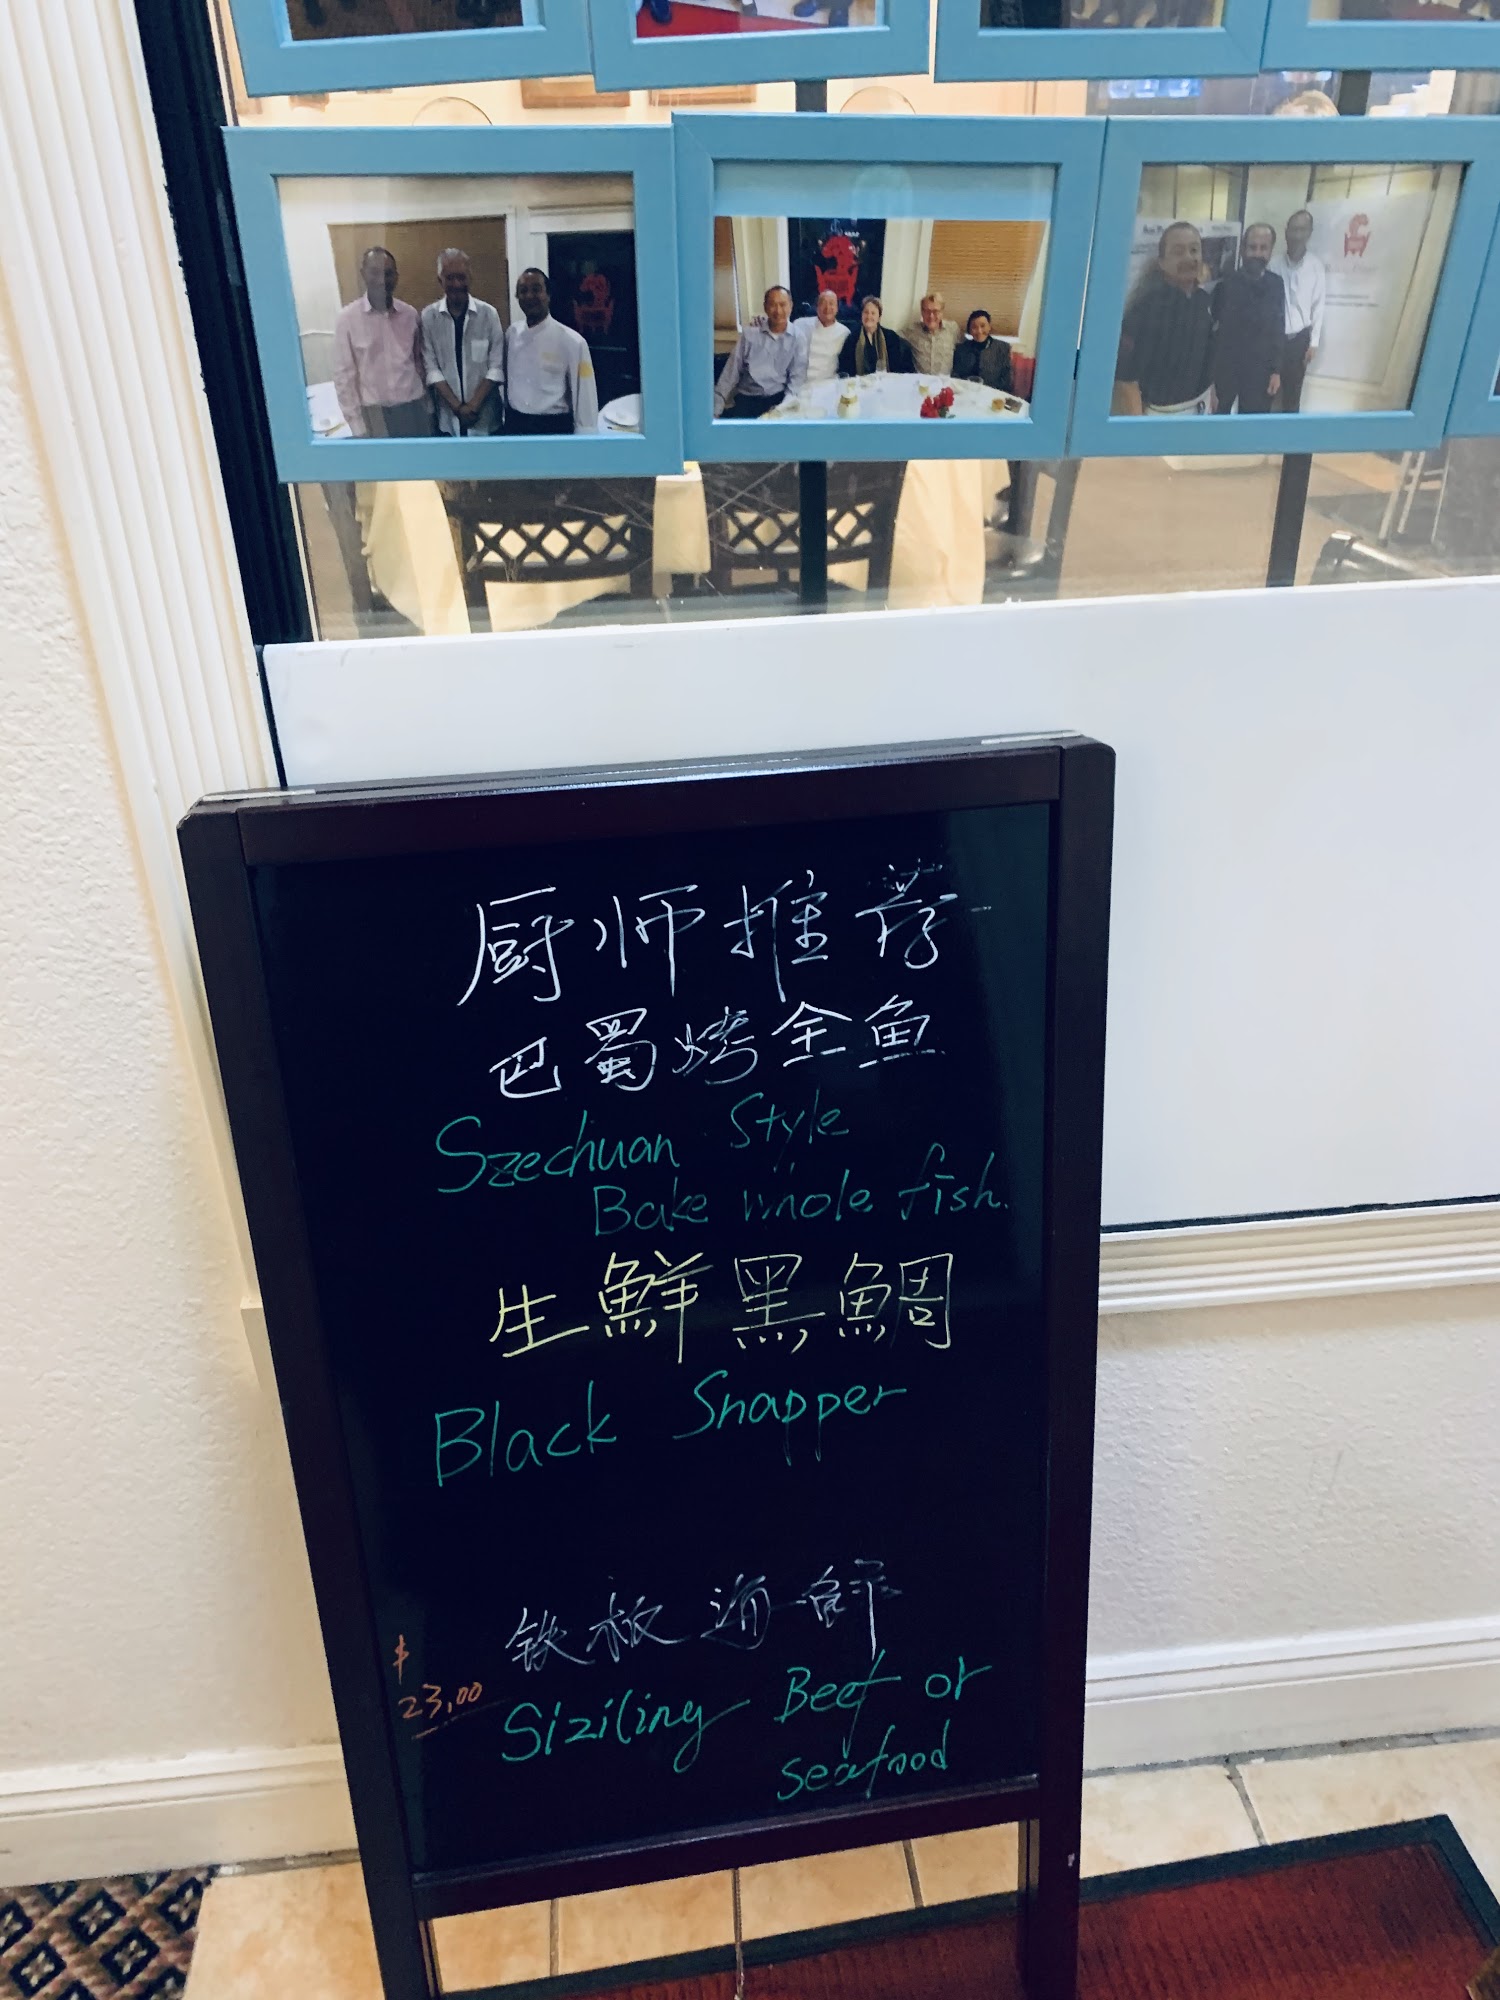 厨师推荐
巴蜀烤全鱼
Szechuan Style
Bake whole fish.
生鮮黑鯛
Black Snapper
铁板海鲜
$
23.00
Siziling Beef or
seafood